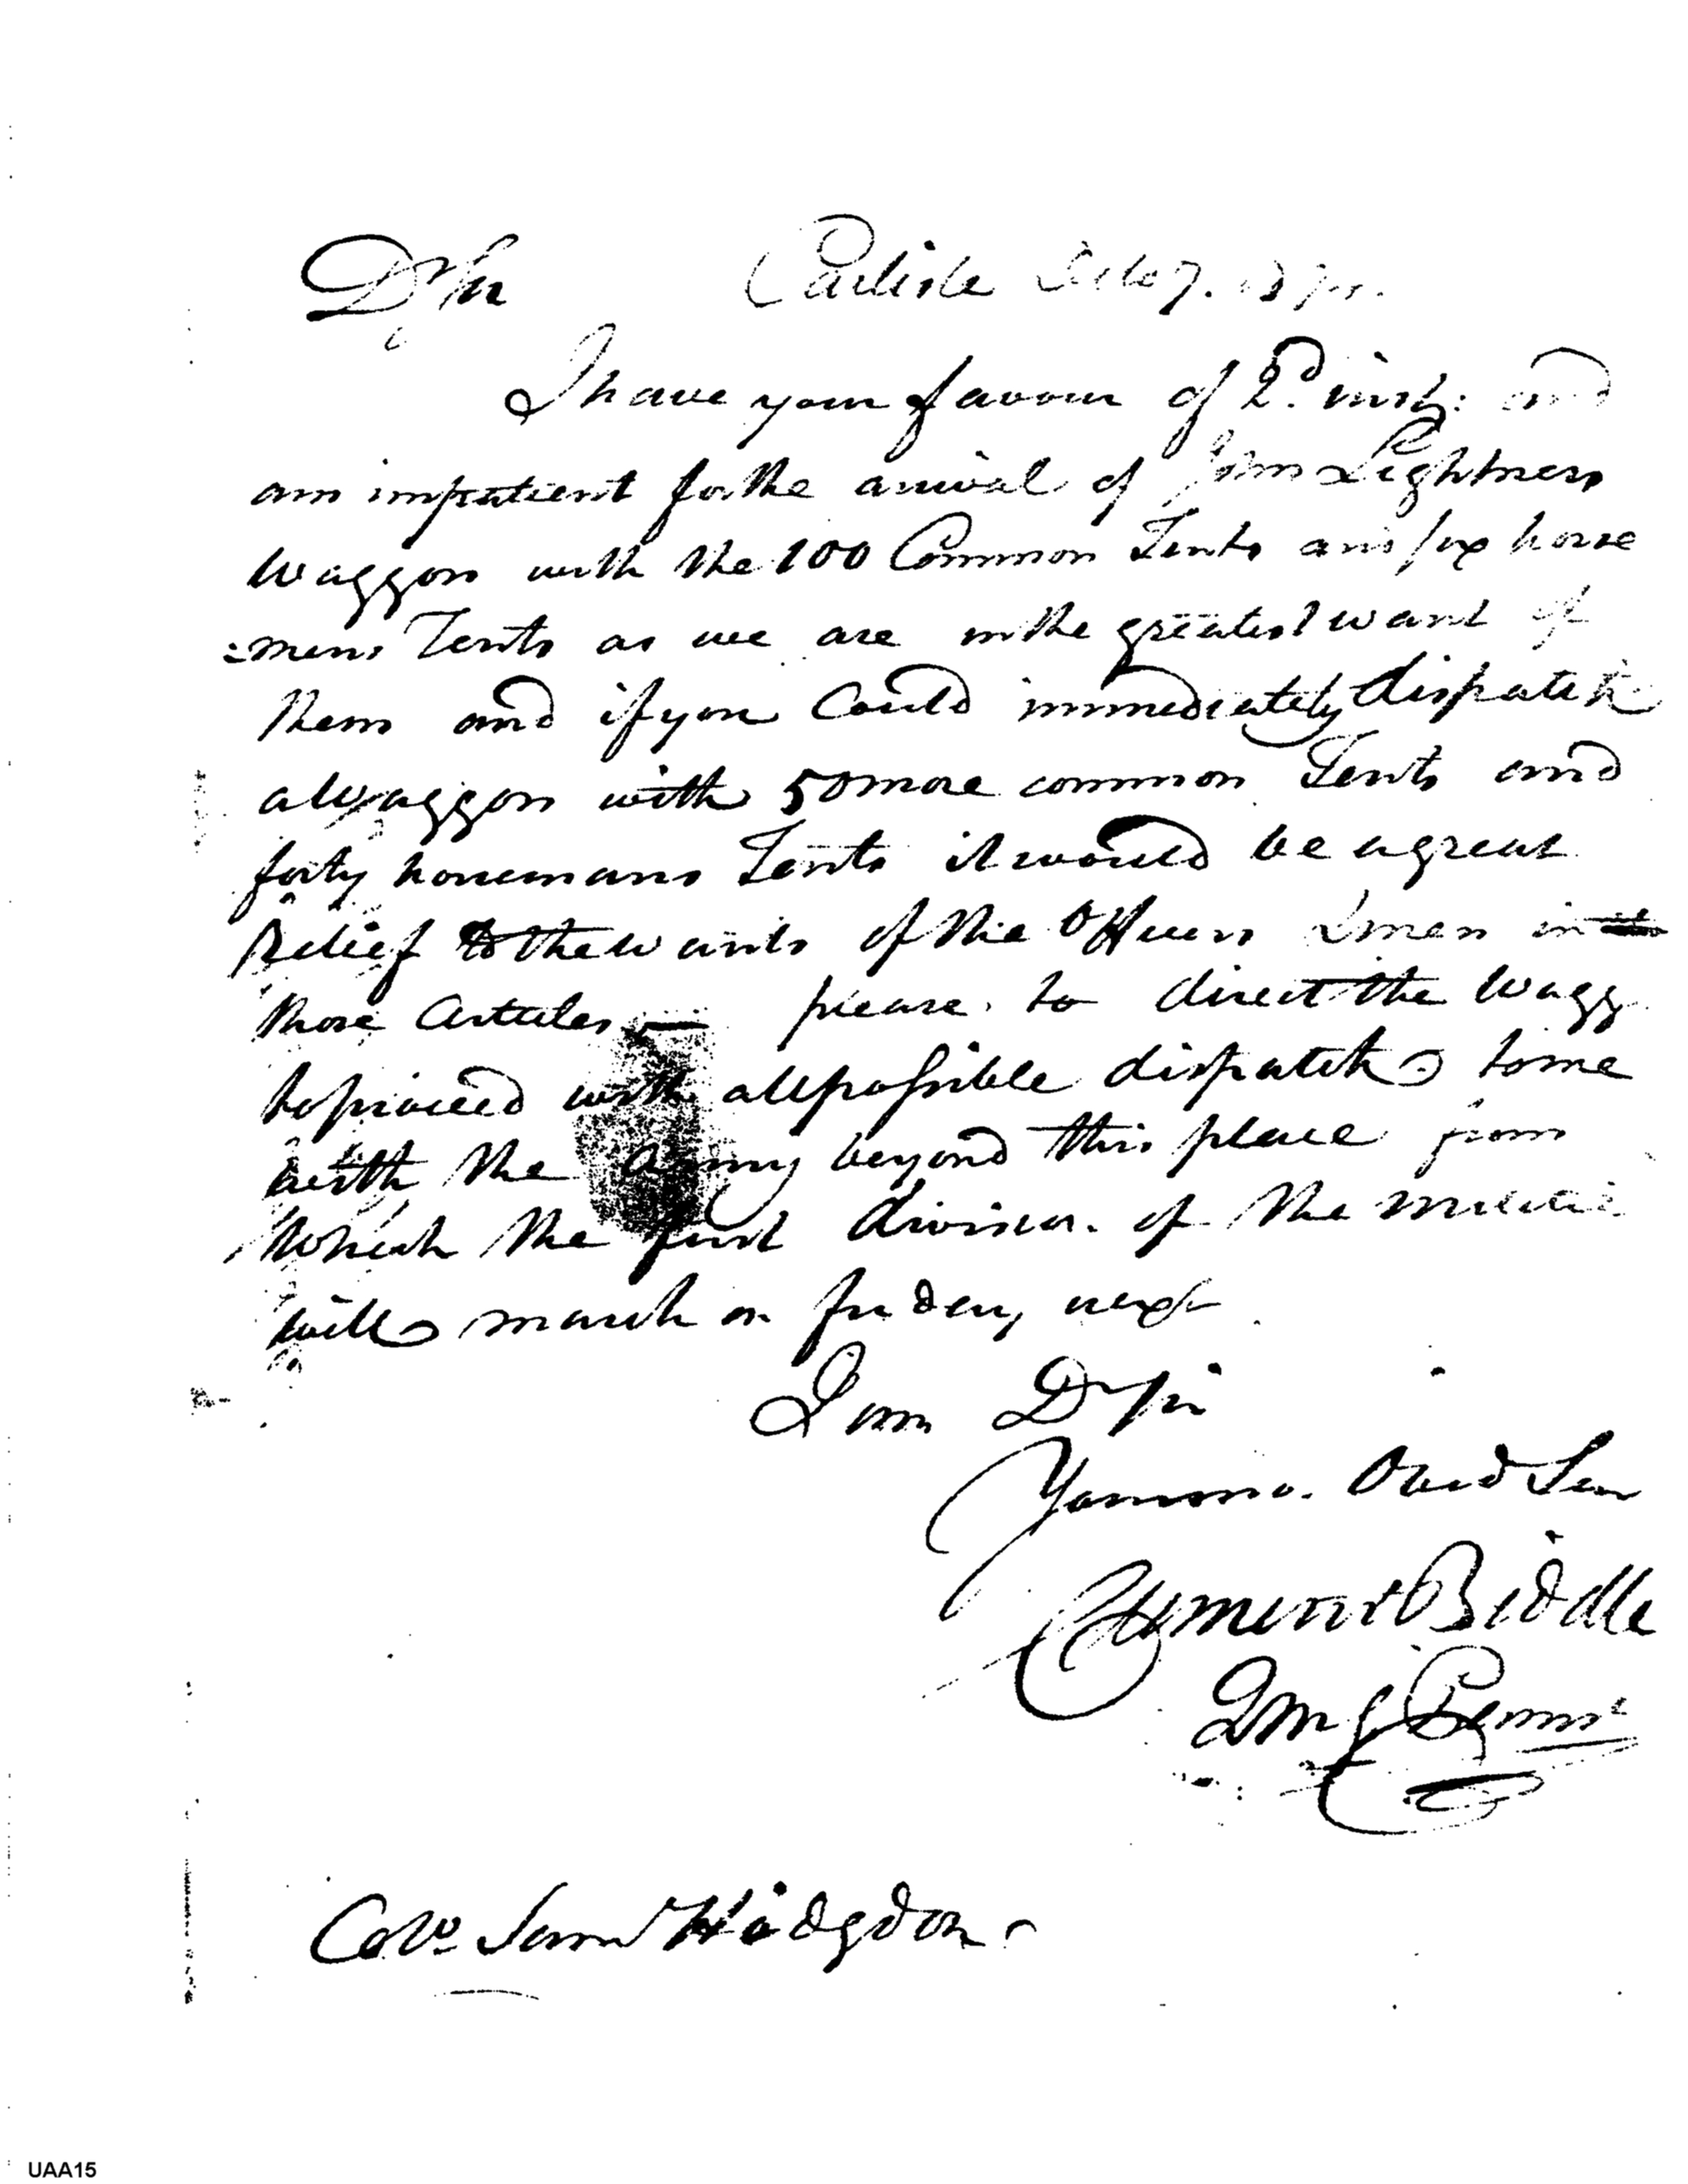 Dr Sir Carlisle 7.
I have your favour of 2d inst: and
am impatient for the arrival of John Lightners
Waggon with the 100 Common Tents and six horse
=mens Tents as we are in the greatest want of
them and if you Could immediately dispatch
a Waggon with 50 more common Tents and
forty horsemans Tents it would be a great
Relief to the wants of the Officers & men in
those Articles — please to direct the Wagg
to proceed with all possible dispatch to me
with the Army beyond this place from
which the first division of the militia
will march on friday next.
I am Dr Sir
Your mo. Obed Ser
Clement Biddle
QmG Pennsa
Colo. Saml Hodgdon
UAA15